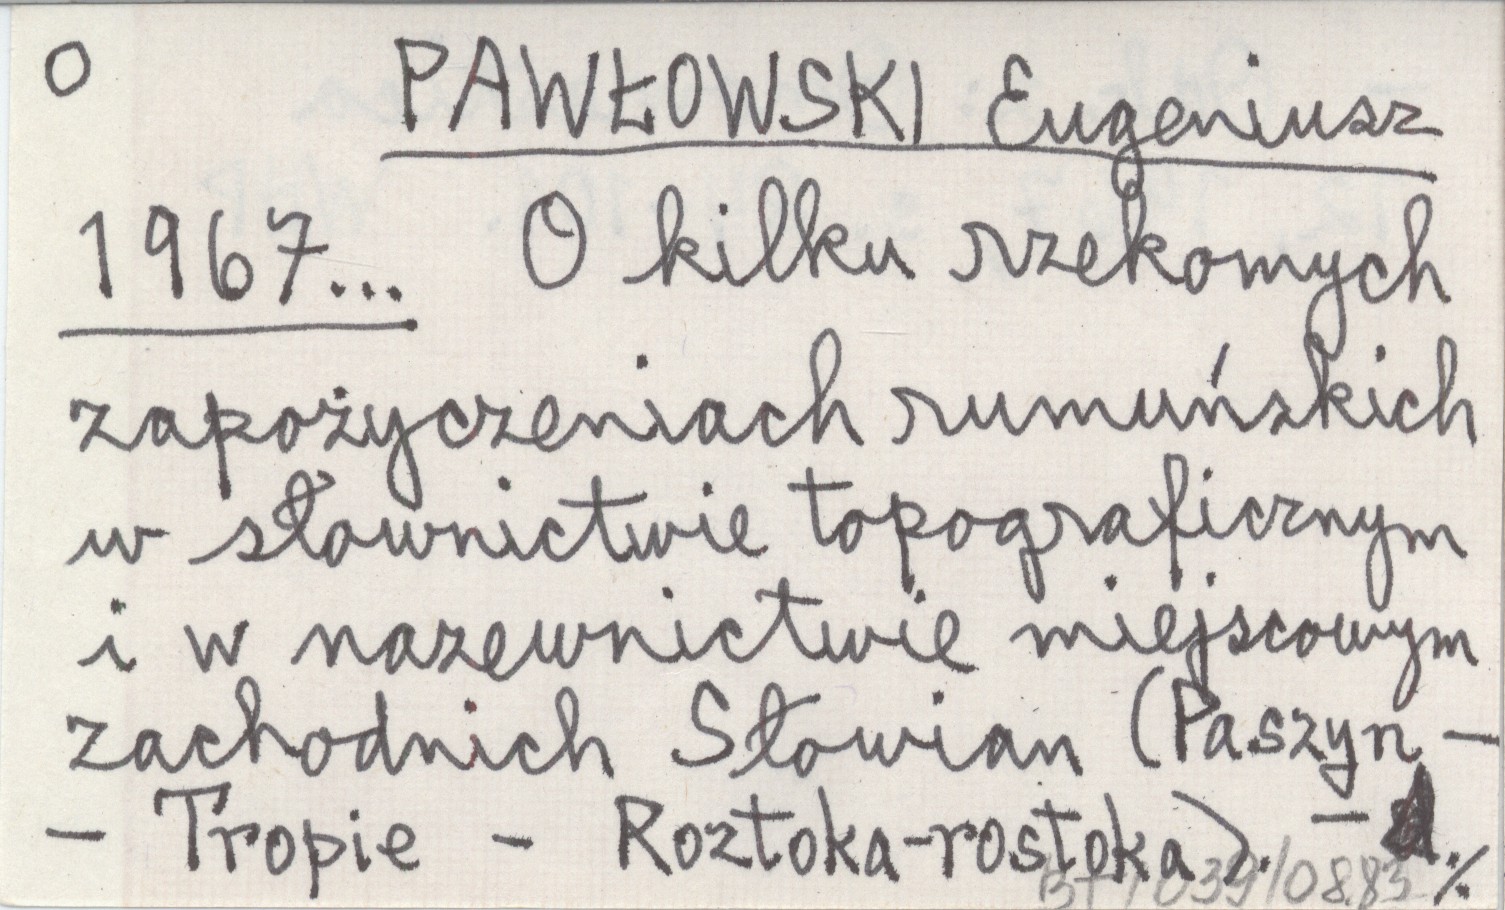 O PAWŁOWSKI Eugeniusz
1967... O kilku rzekomych
zapożyczeniach rumuńskich
w słownictwie topograficznym
i w nazewnictwie miejscowym
zachodnich Słowian (Paszyn -
- Tropie - Roztoka-rostoka). -
039/08.83 ./.